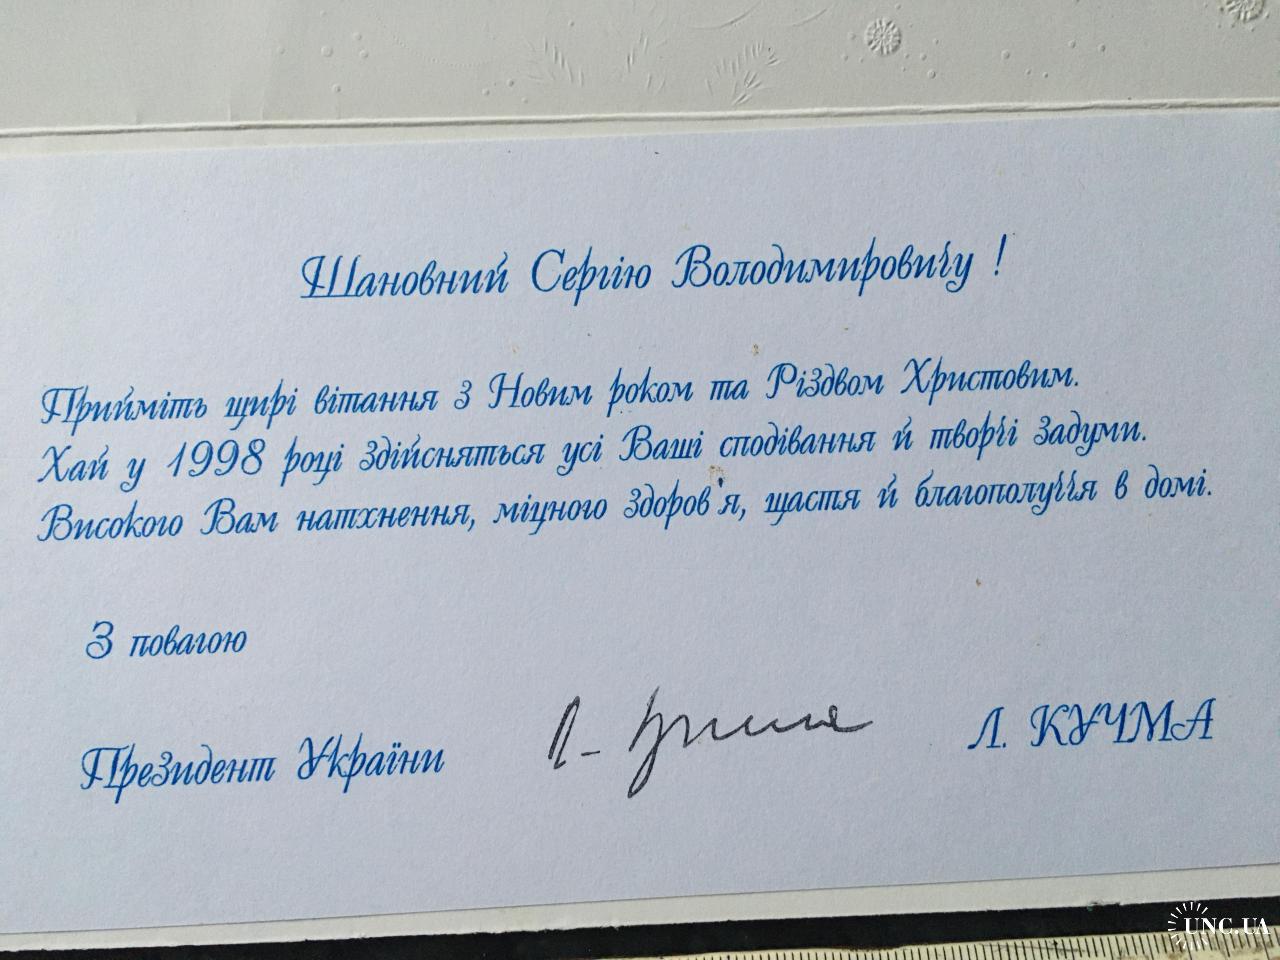 Шановний Сергію Володимировичу !
Прийміть щирі вітання з Новим роком та Різдвом Христовим.
Хай у 1998 році здійсняться усі Ваші сподівання й творчі задуми.
Високого Вам натхнення, міцного здоров'я, щастя й благополуччя в домі.
З повагою
Президент України
Л. КУЧМА
UNC.UA